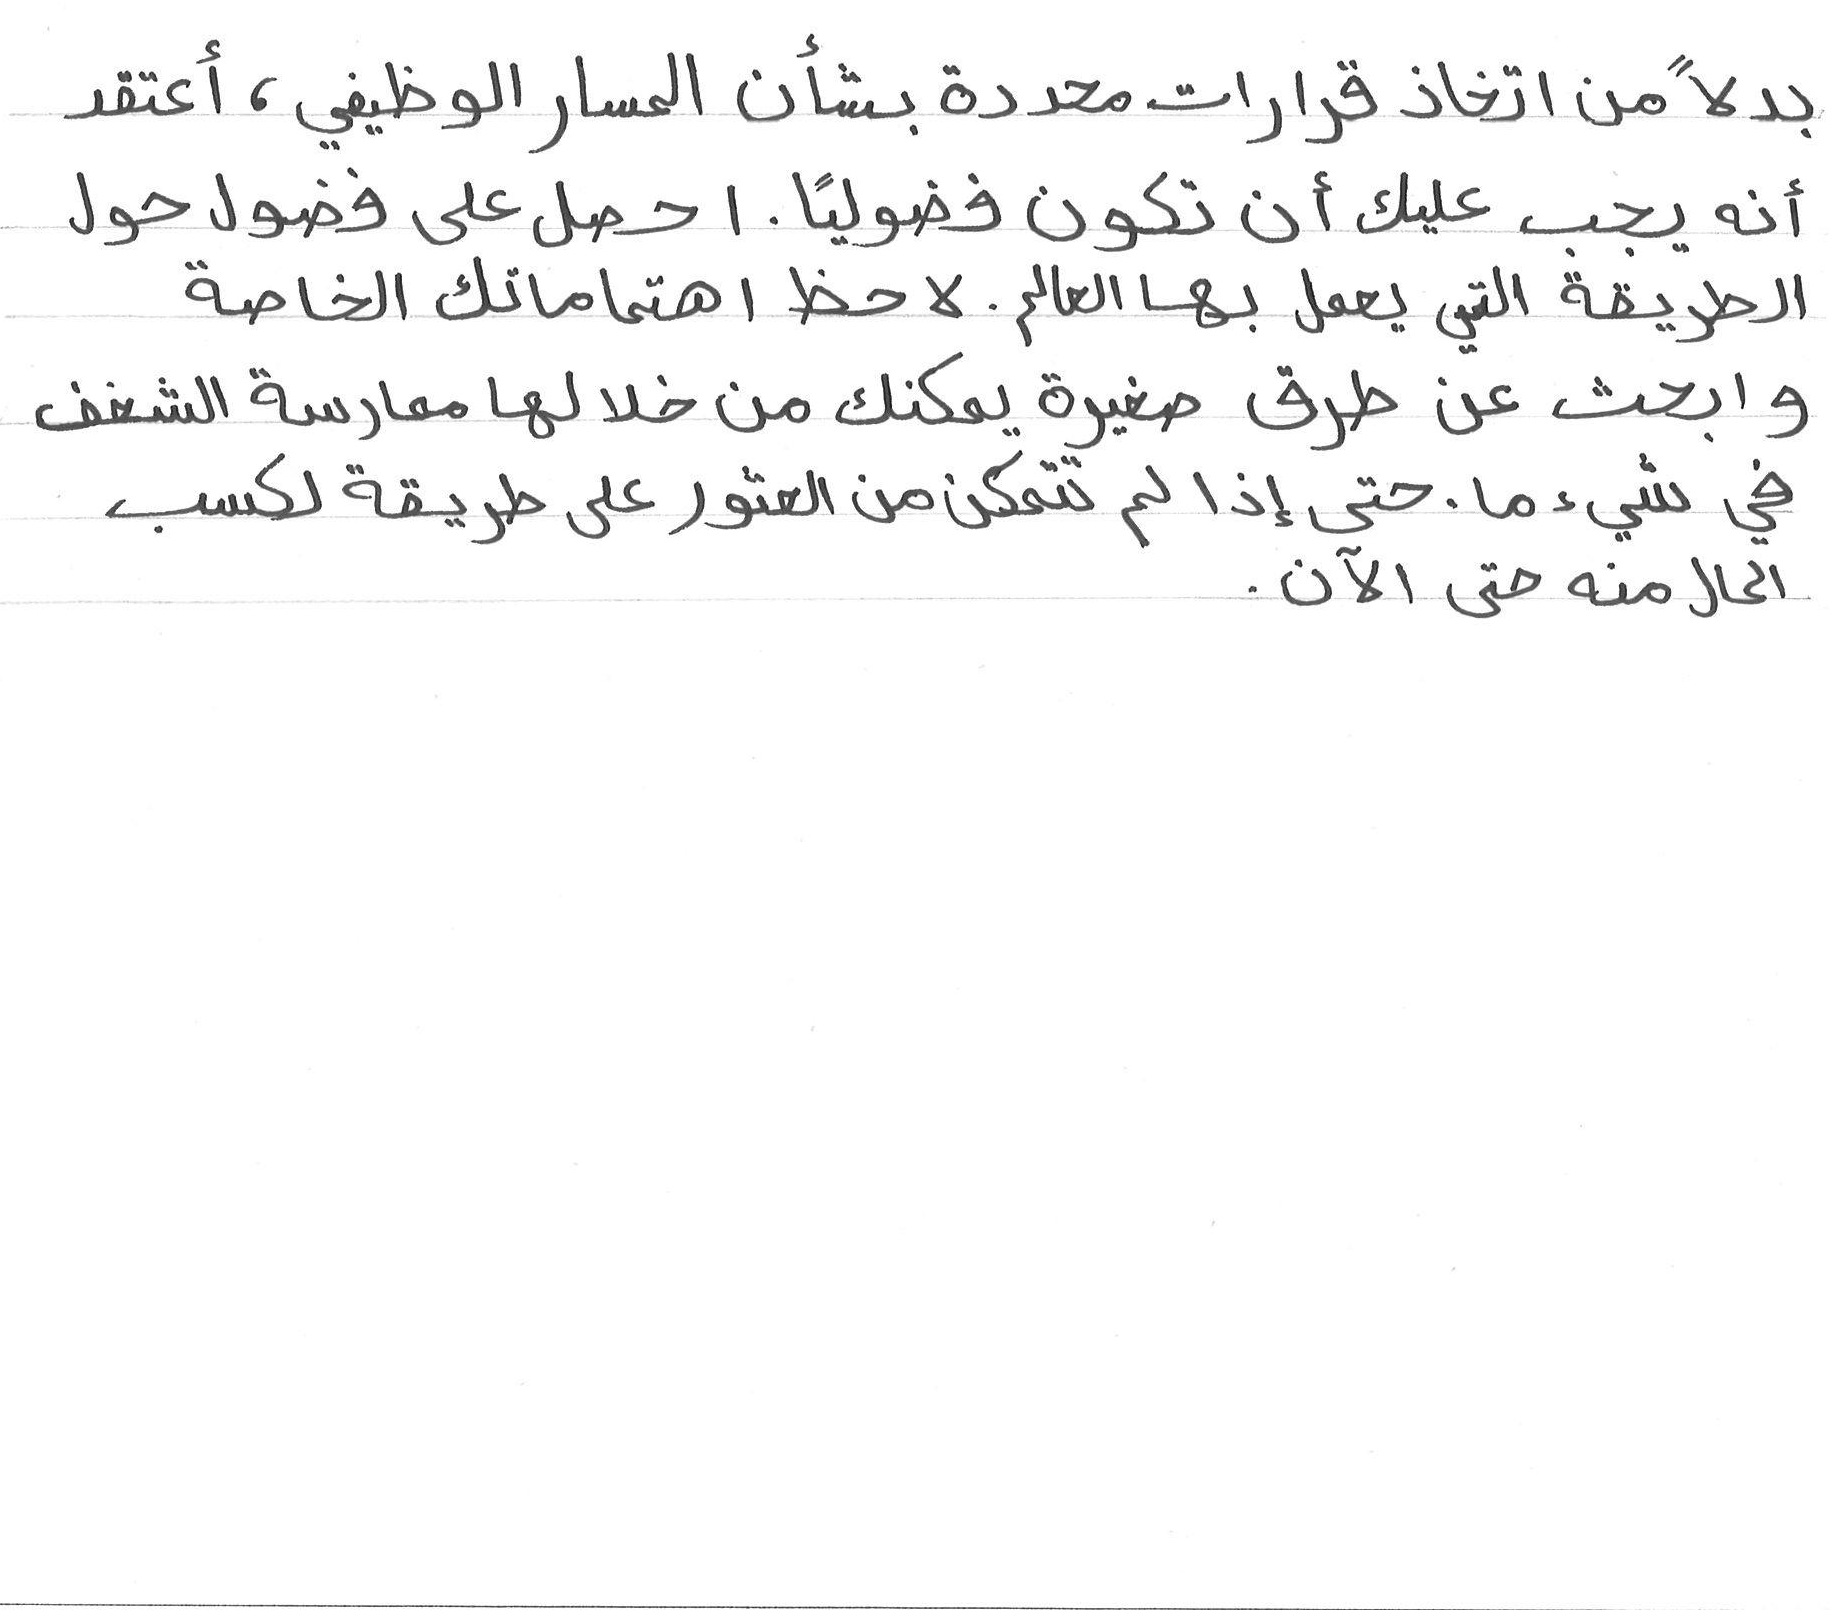 بدلاً من اتخاذ قرارات محددة بشأن المسار الوظيفي، أعتقد
أنه يجب عليك أن تكون فضوليًا. احصل على فضول حول
الطريقة التي يعمل بها العالم. لاحظ اهتماماتك الخاصة
وابحث عن طرق صغيرة يمكنك من خلالها ممارسة الشغف
في شيء ما. حتى إذا لم تتمكن من العثور على طريقة لكسب
المال منه حتى الآن.